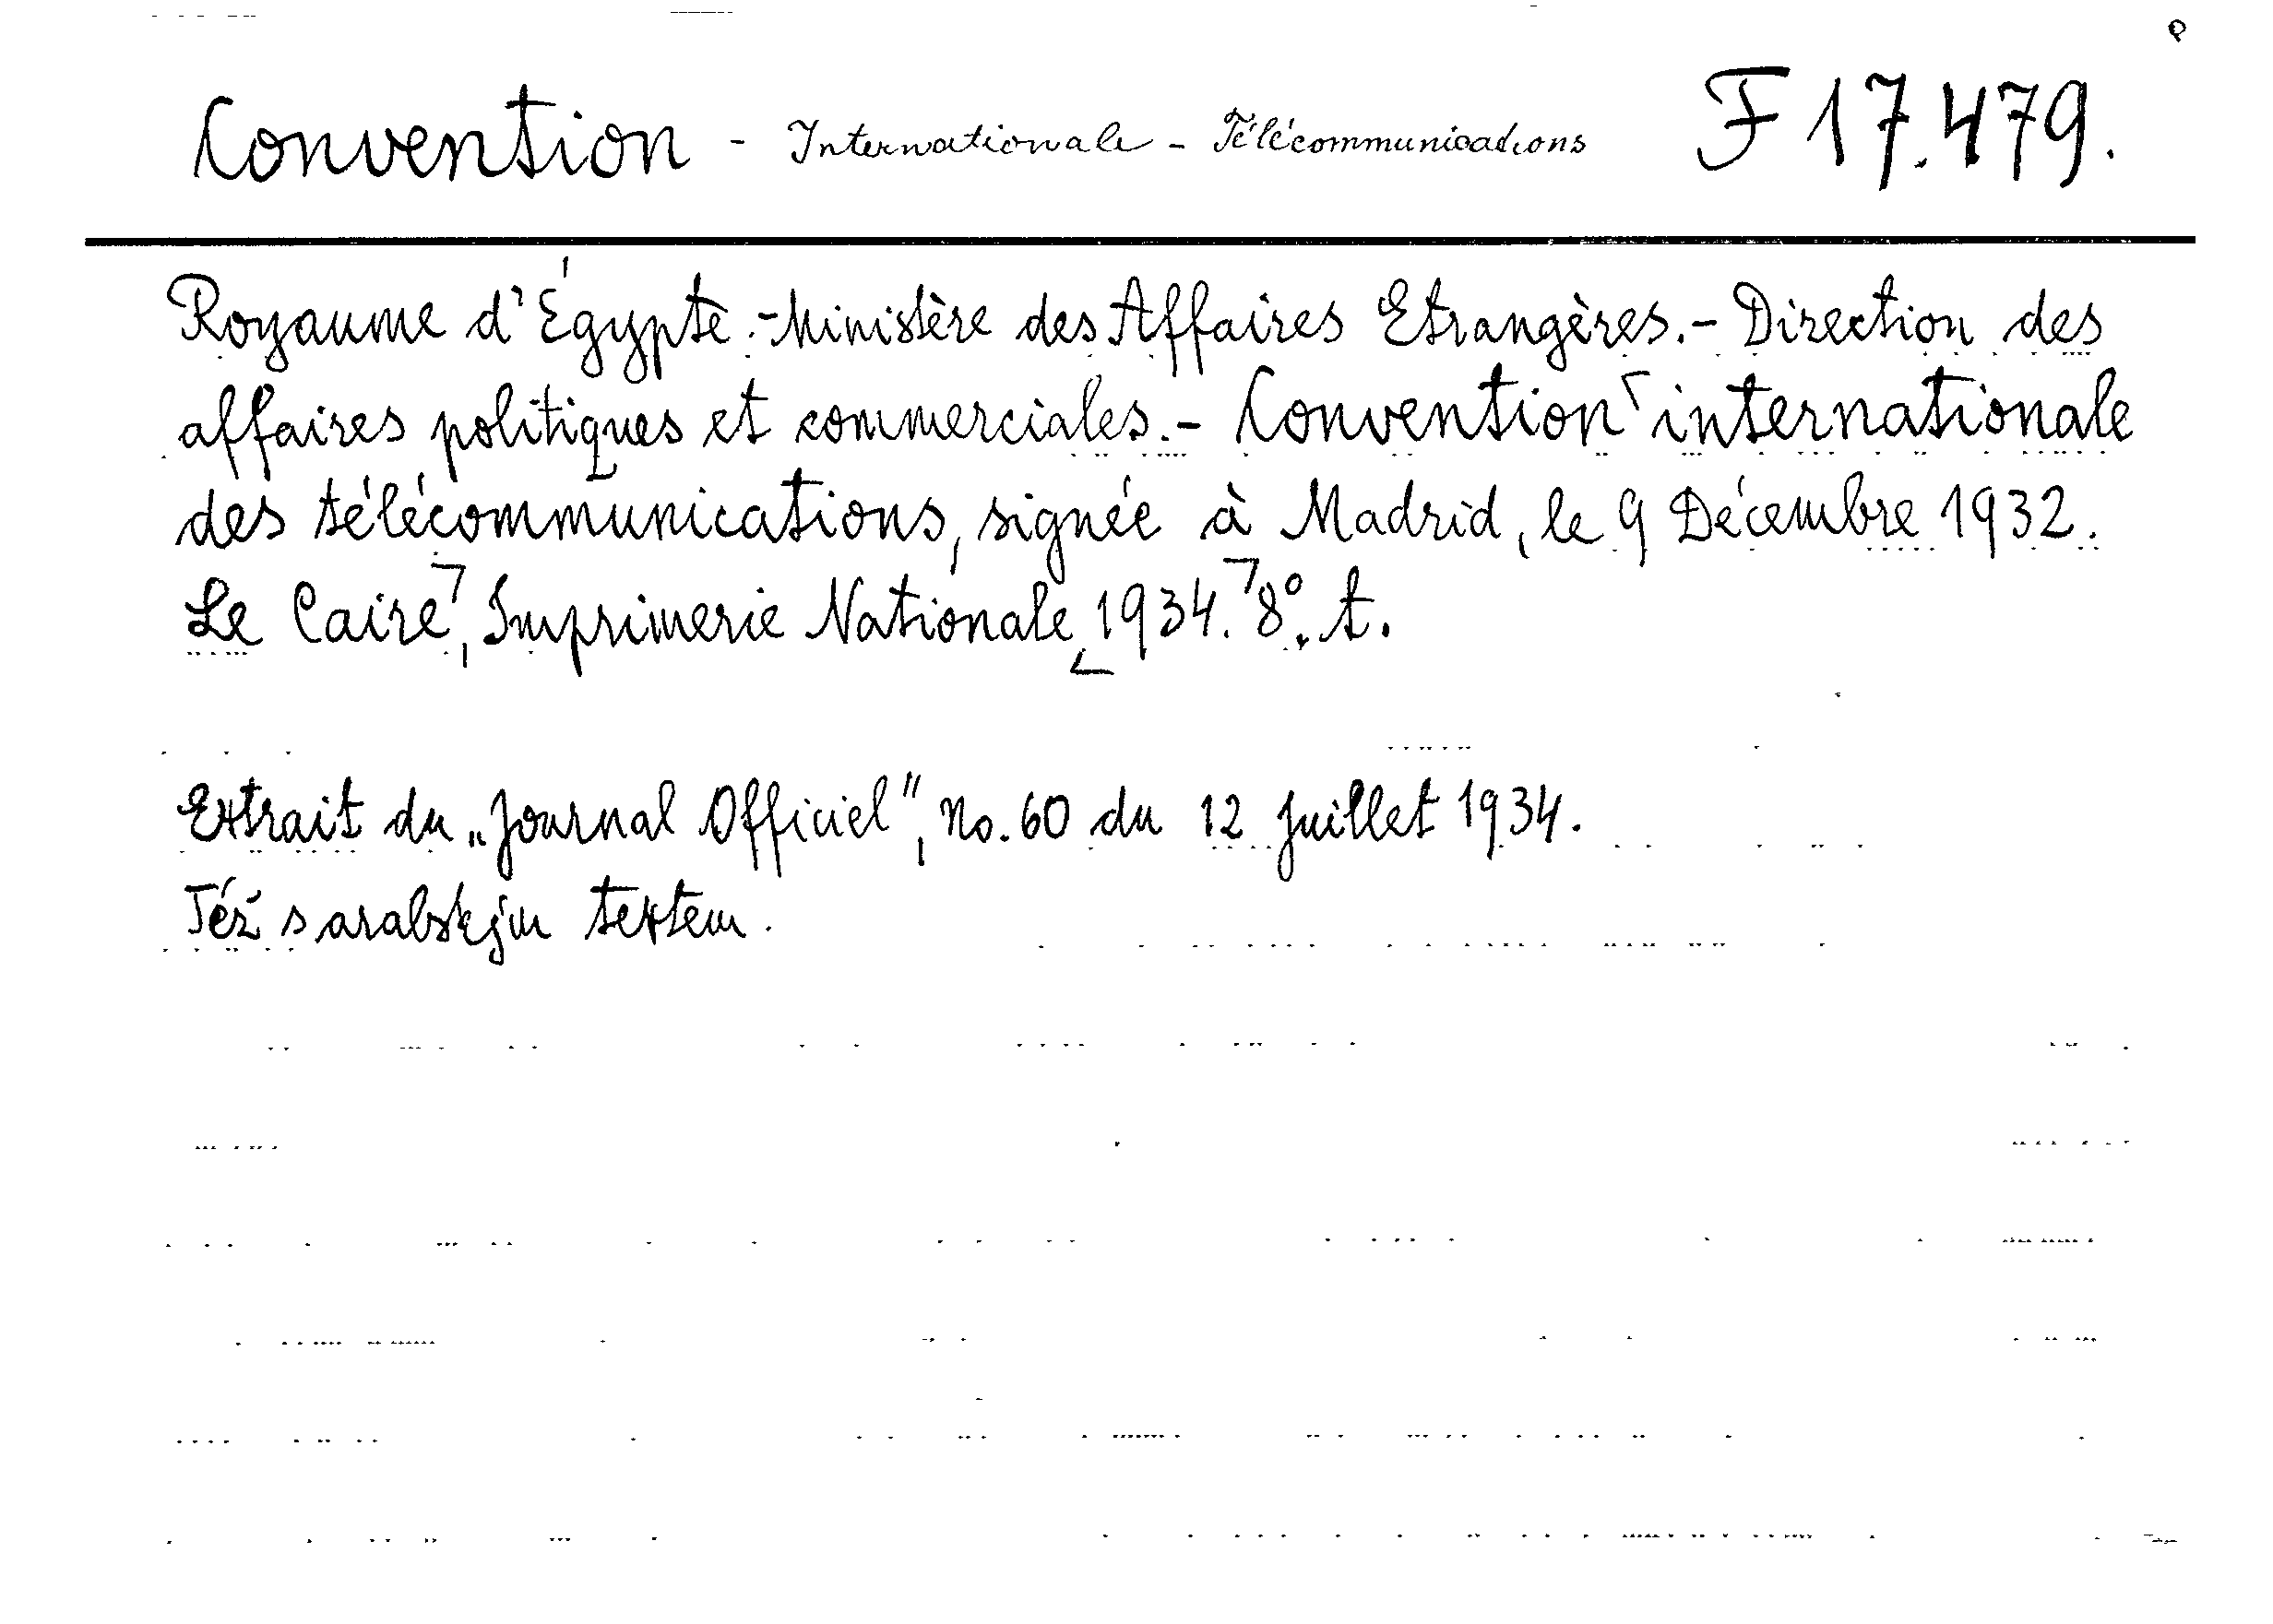 Convention - Internationale - Télécommunications F 17.479.
Royaume d'Égypte.-Ministère des Affaires Etrangères.- Direction des
affaires politiques et commerciales.- Convention internationale
des télécommunications, signée à Madrid, le 9 Décembre 1932.
Le Caire, Imprimerie Nationale, 1934. 8°. t.
Extrait du „Journal Officiel", No. 60 du 12 juillet 1934.
Též s arabským textem.